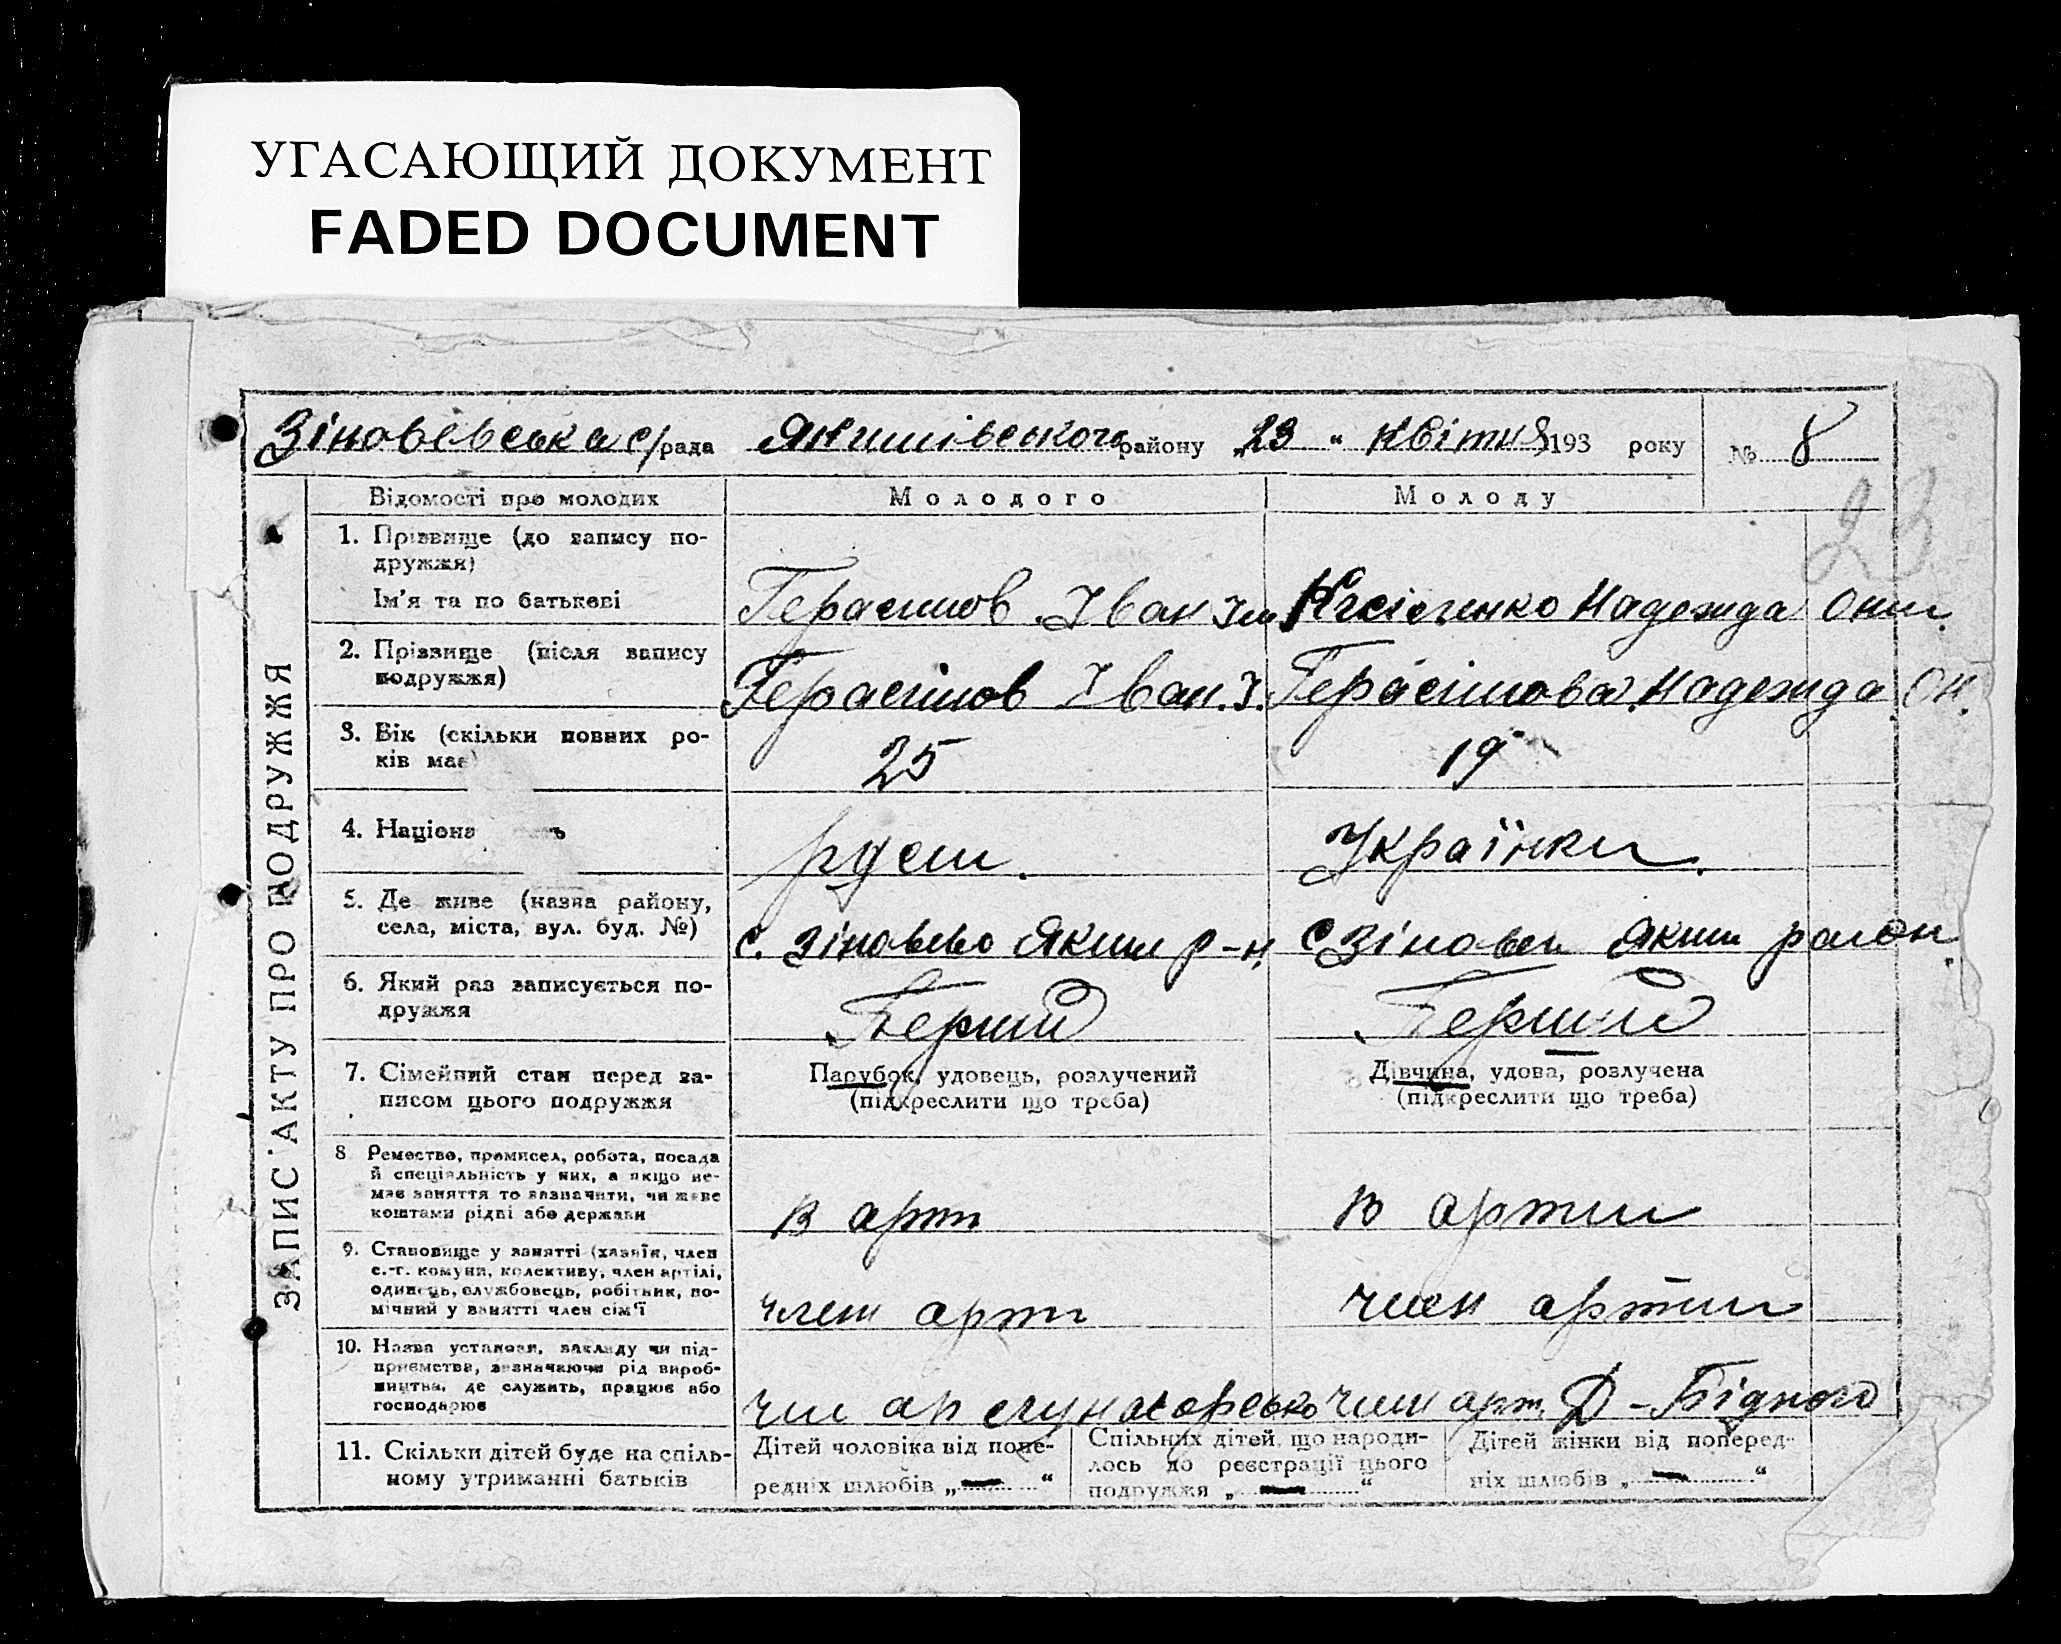 УГАСАЮЩИЙ ДОКУМЕНТ
FADED DOCUMENT
Зіновєвська с/рада Якимівського району „23" квітня 193 року № 8
23
ЗАПИС АКТУ ПРО ПОДРУЖЖЯ
Відомості про молодих Молодого Молоду
1. Прізвище (до запису по-
дружжя)
Ім'я та по батькові
Герасимов Іван Надежда Они.
2. Прізвище (після запису
подружжя)
Герасімов Іван. І. Герасимова Надежда ОН.
3. Вік (скільки повних ро-
ків має)
25 19
4. Націона ь
руси. Українки.
5. Де живе (назва району,
села, міста, вул. буд. №)
с. Зіновєво Яким р-н. с Зіновєв Яким район.
6. Який раз записується по-
дружжя
Перший Перший
7. Сімейний стан перед за-
писом цього подружжя
Парубок, удовець, розлучений
(підкреслити що треба)
Дівчина, удова, розлучена
(підкреслити що треба)
8 Ремество, промисел, робота, посада
й спеціяльність у них, а якщо не-
має заняття то зазначити, чи живе
коштами рідні або держави
в арті в артии
9. Становище у занятті (хазяїн, член
с.-г. комуни, колективу, член артілі,
одинець, службовець, робітник, по-
мічний у занятті член сім'ї
член арті член артии
10. Назва установи, закладу чи під-
приємства, зазначаючи рід вироб-
ництва, де служить, працює або
господарює
член арт. Д-Бідного
11. Скільки дітей буде на спіль-
ному утриманні батьків
Дітей чоловіка від попе-
редніх шлюбів „— "
Спільних дітей, що народи-
лось до реєстрації цього
подружжя „— "
Дітей жінки від поперед-
ніх шлюбів „— "